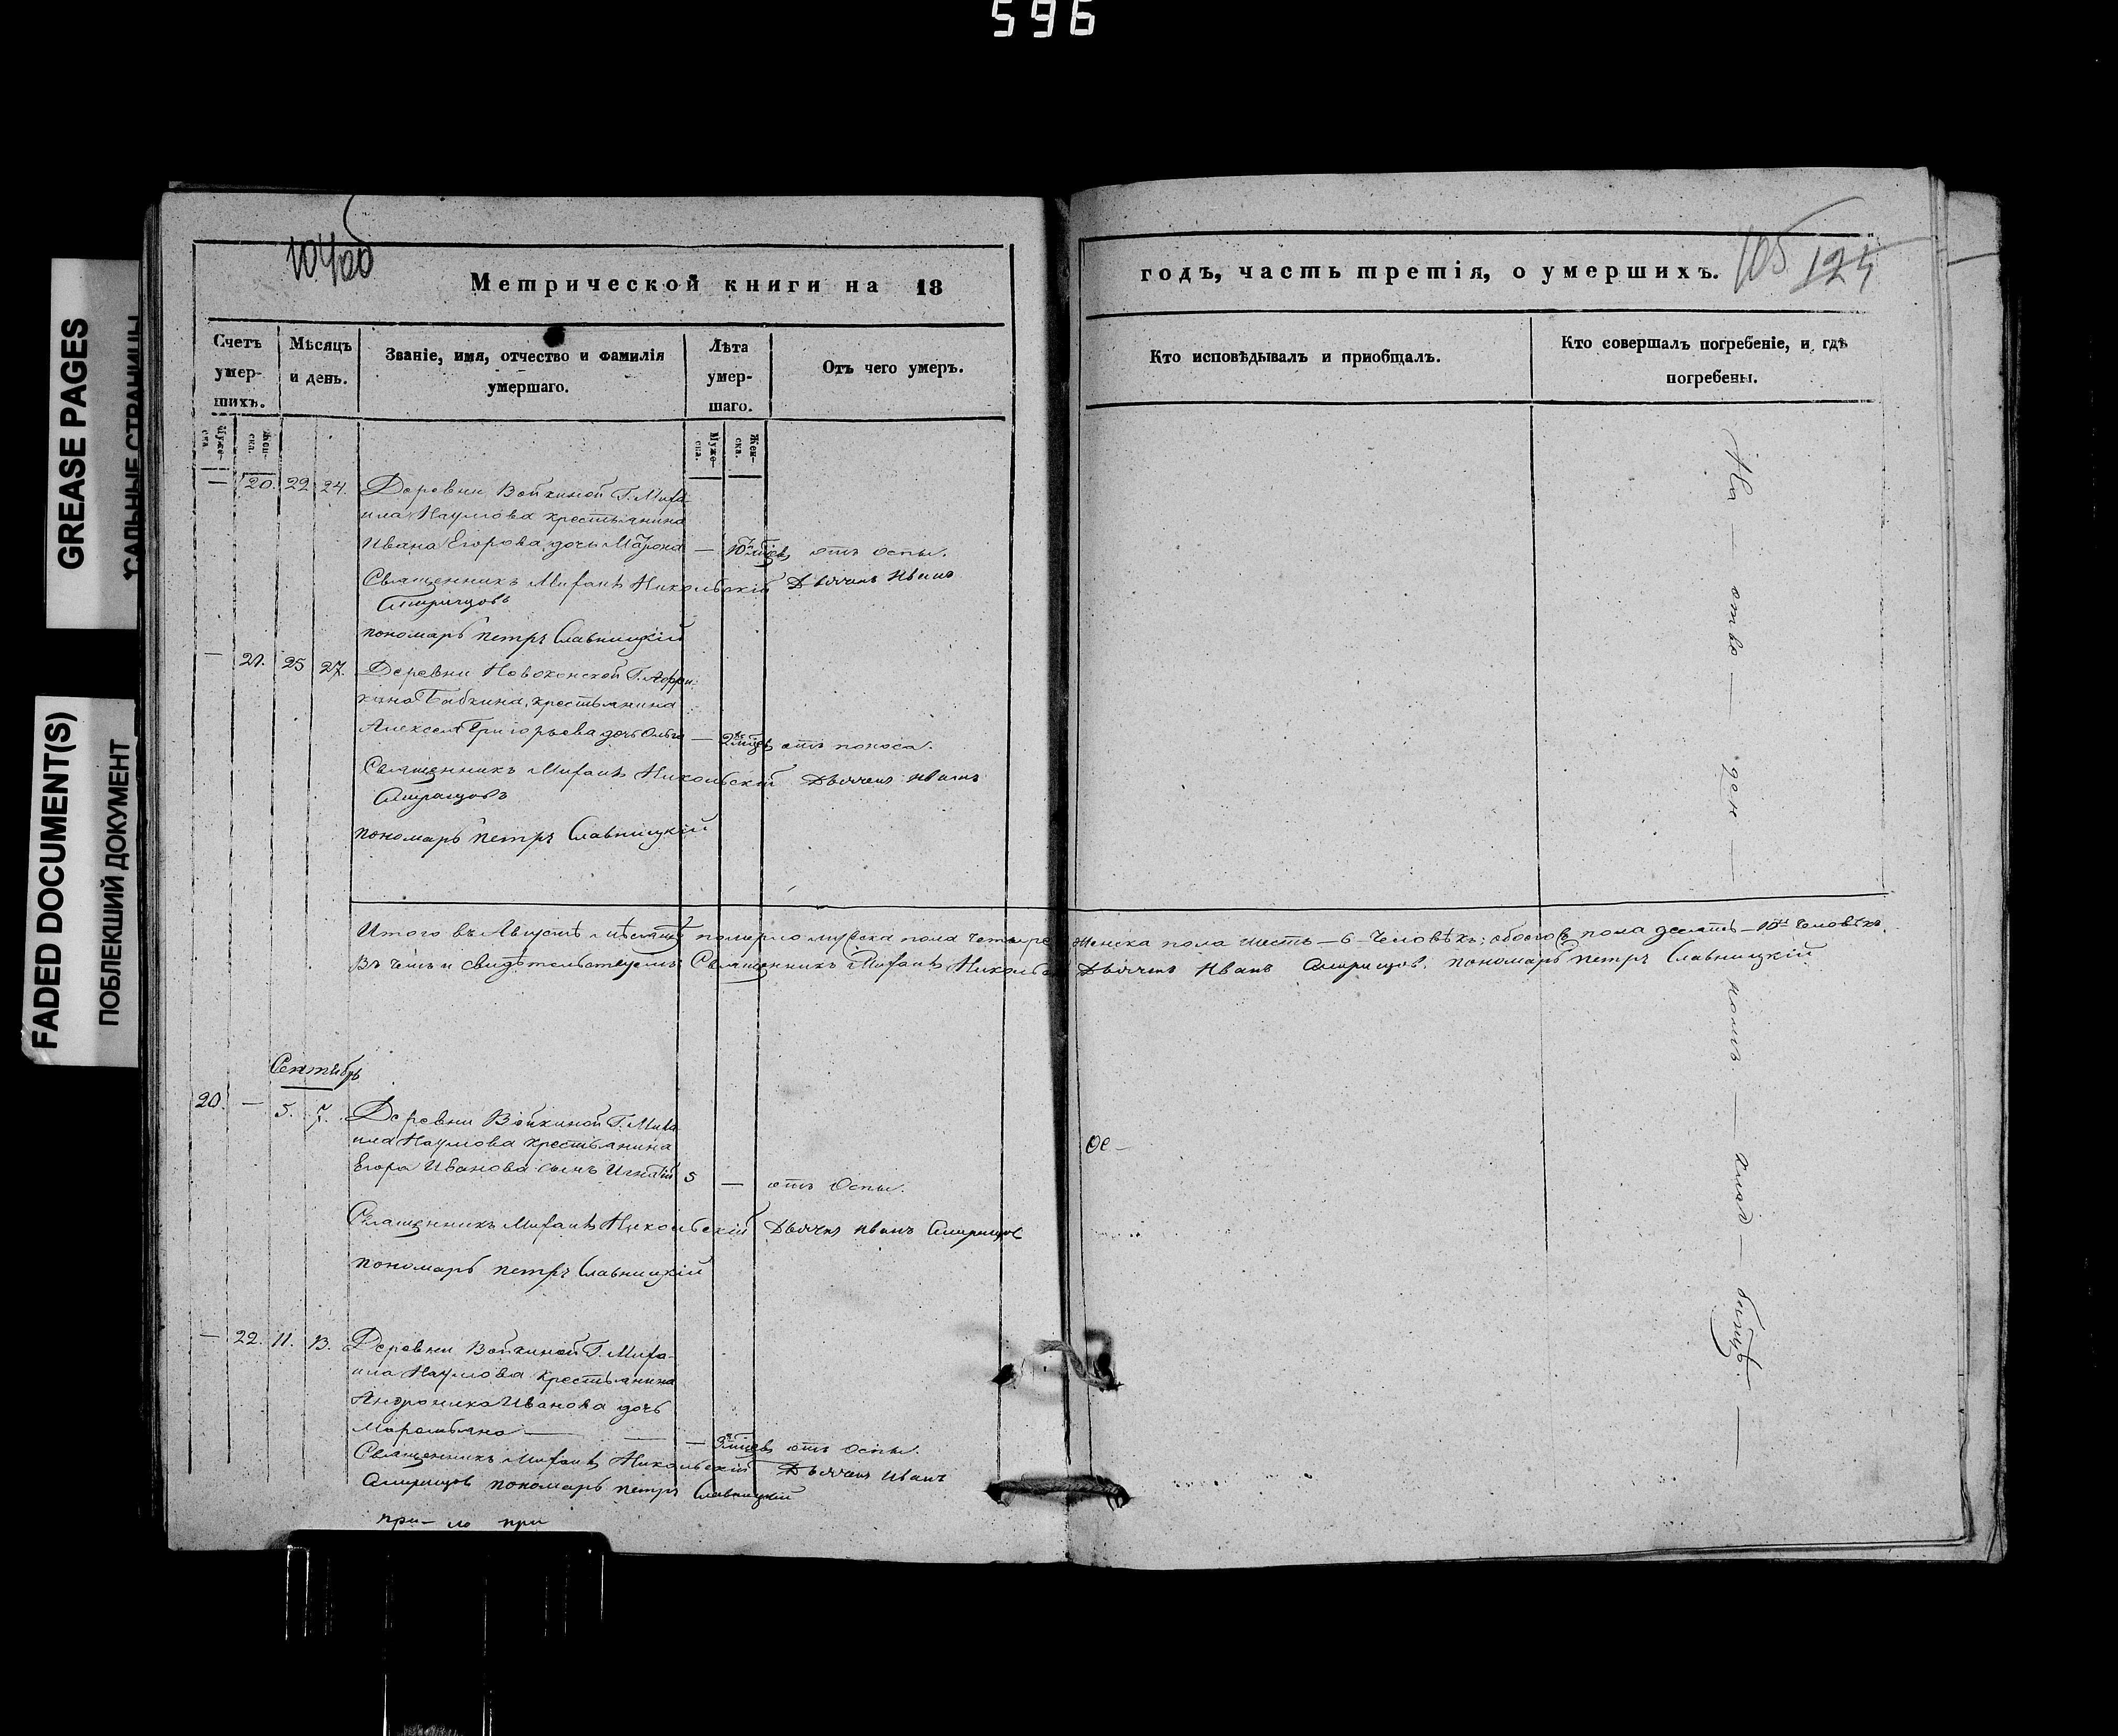 596
GREASE PAGES
FADED DOCUMENT(S)
ПОБЛЕКШИЙ ДОКУМЕНТ
104об
Метрической книги на 18
Счетъ умер-шихъ.
Мѣсяцъ и день.
Званіе, имя, отчество и фамилія умершаго.
Лѣта умер-шаго.
Отъ чего умеръ.
Муже-ска.
Жен-ска.
Муже-ска.
Жен-ска.
— 20. 22 24. Деревни Войкиной Г. Миха-
ила Наумова крестьянина
Ивана Егорова дочь — 10 отъ оспы.
Священникъ Михаилъ Никольскій Дьячекъ Иванъ
пономарь петръ Славницкій
— 21. 25 27. Деревни Г.
Бабкина, крестьянина
Алексея Григорьева дочь Ольга — 2 отъ поноса.
Священникъ Михаилъ Никольскій Дьячекъ Иванъ
пономарь петръ Славницкій
Итого въ Августѣ мѣсяцѣ померло мужска пола четыре
Въ чемъ и свидѣтельствуемъ: Священникъ Михаилъ
Сентябрь
20. — 5. 7. Деревни Войкиной Г. Миха-
ила Наумова крестьянина
Егора Иванова сынъ Игнатій 5 — отъ Оспы.
Священникъ Михаилъ Никольскій Дьячекъ Иванъ
пономарь петръ Славницкій
— 22. 11. 13. Деревни Войкиной Г. Миха-
ила Наумова крестьянина
Андроника Иванова дочь
— 3 отъ оспы.
Священникъ Михаилъ Никольскій Дьячекъ Иванъ
пономарь петръ Славницкій
при — ло при
105 124
годъ, часть третія, о умершихъ.
Кто исповѣдывалъ и приобщалъ.
Кто совершалъ погребеніе, и гдѣ погребены.
Женска пола шесть — 6 — человѣкъ; обоего пола десять — 10 человѣкъ.
Дьячекъ Иванъ пономарь петръ Славницкій
На — отво — ден — номъ — клад — бищѣ. —